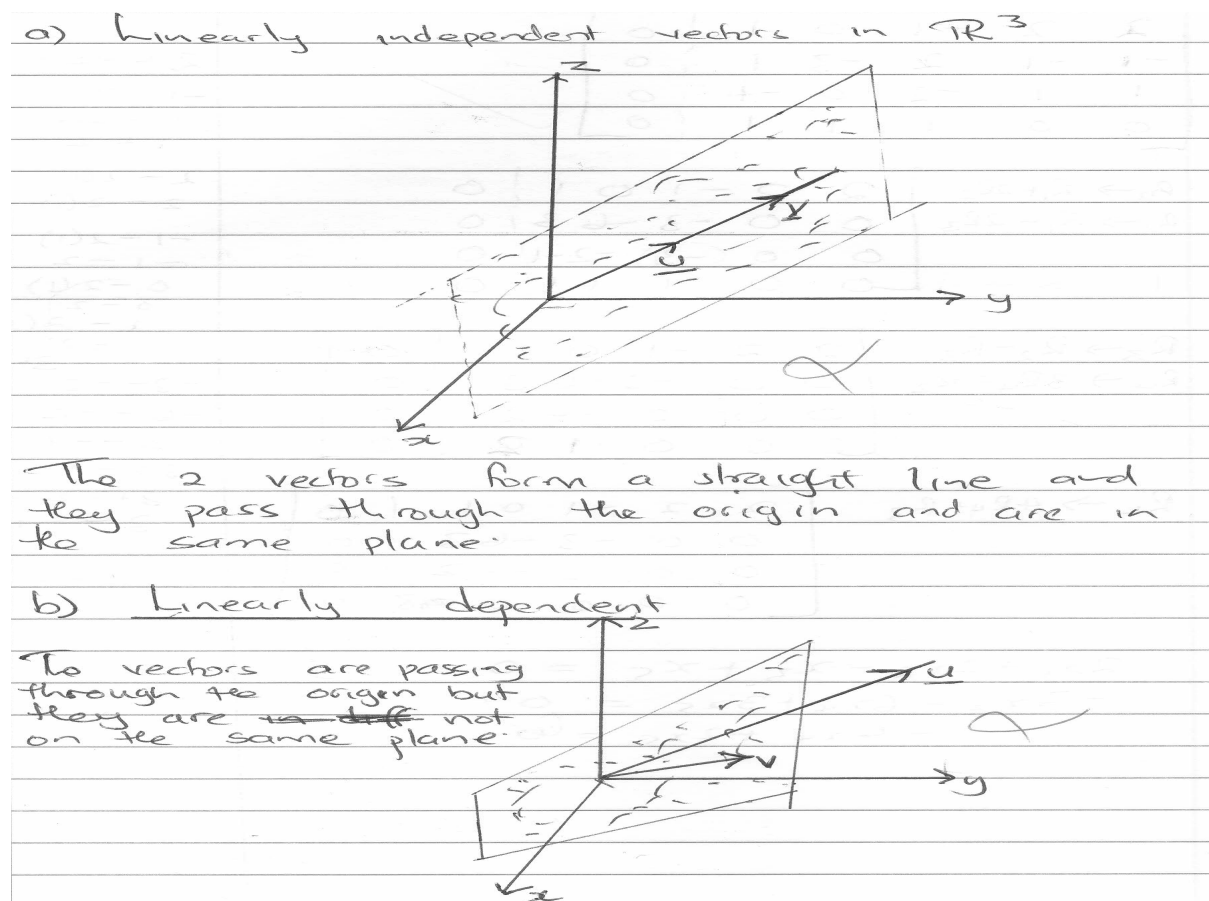 a) Linearly independent vectors in ℝ³
z
v
u
y
x
The 2 vectors form a straight line and
they pass through the origin and are in
the same plane.
b) Linearly dependent
z
To vectors are passing
through the origen but
they are not
on the same plane.
u
v
y
x